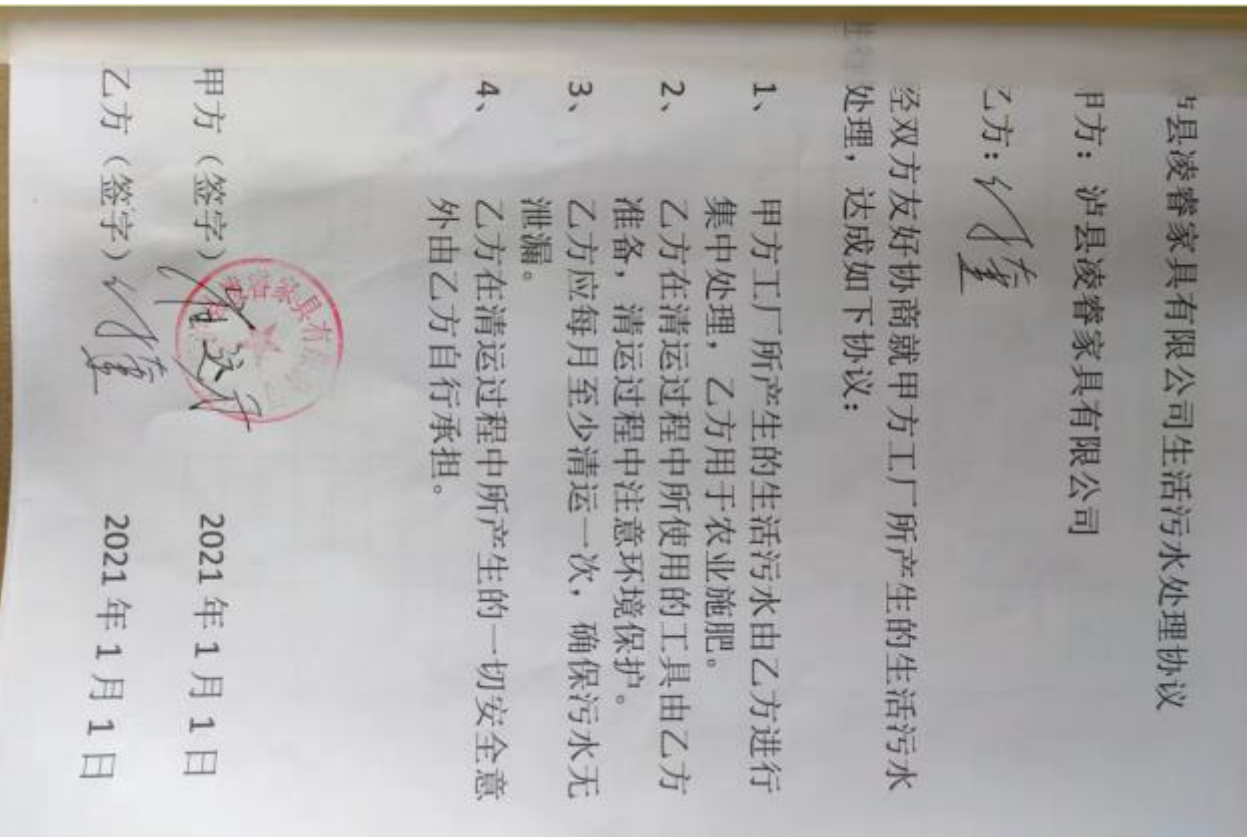 县凌睿家具有限公司生活污水处理协议
甲方：泸县凌睿家具有限公司
乙方：
经双方友好协商就甲方工厂所产生的生活污水
进行处理，达成如下协议：
1、甲方工厂所产生的生活污水由乙方进行
集中处理，乙方用于农业施肥。
2、乙方在清运过程中所使用的工具由乙方
准备，清运过程中注意环境保护。
3、乙方应每月至少清运一次，确保污水无
泄漏。
4、乙方在清运过程中所产生的一切安全意
外由乙方自行承担。
甲方（签字） 2021年1月1日
乙方（签字） 2021年1月1日
睿家具有